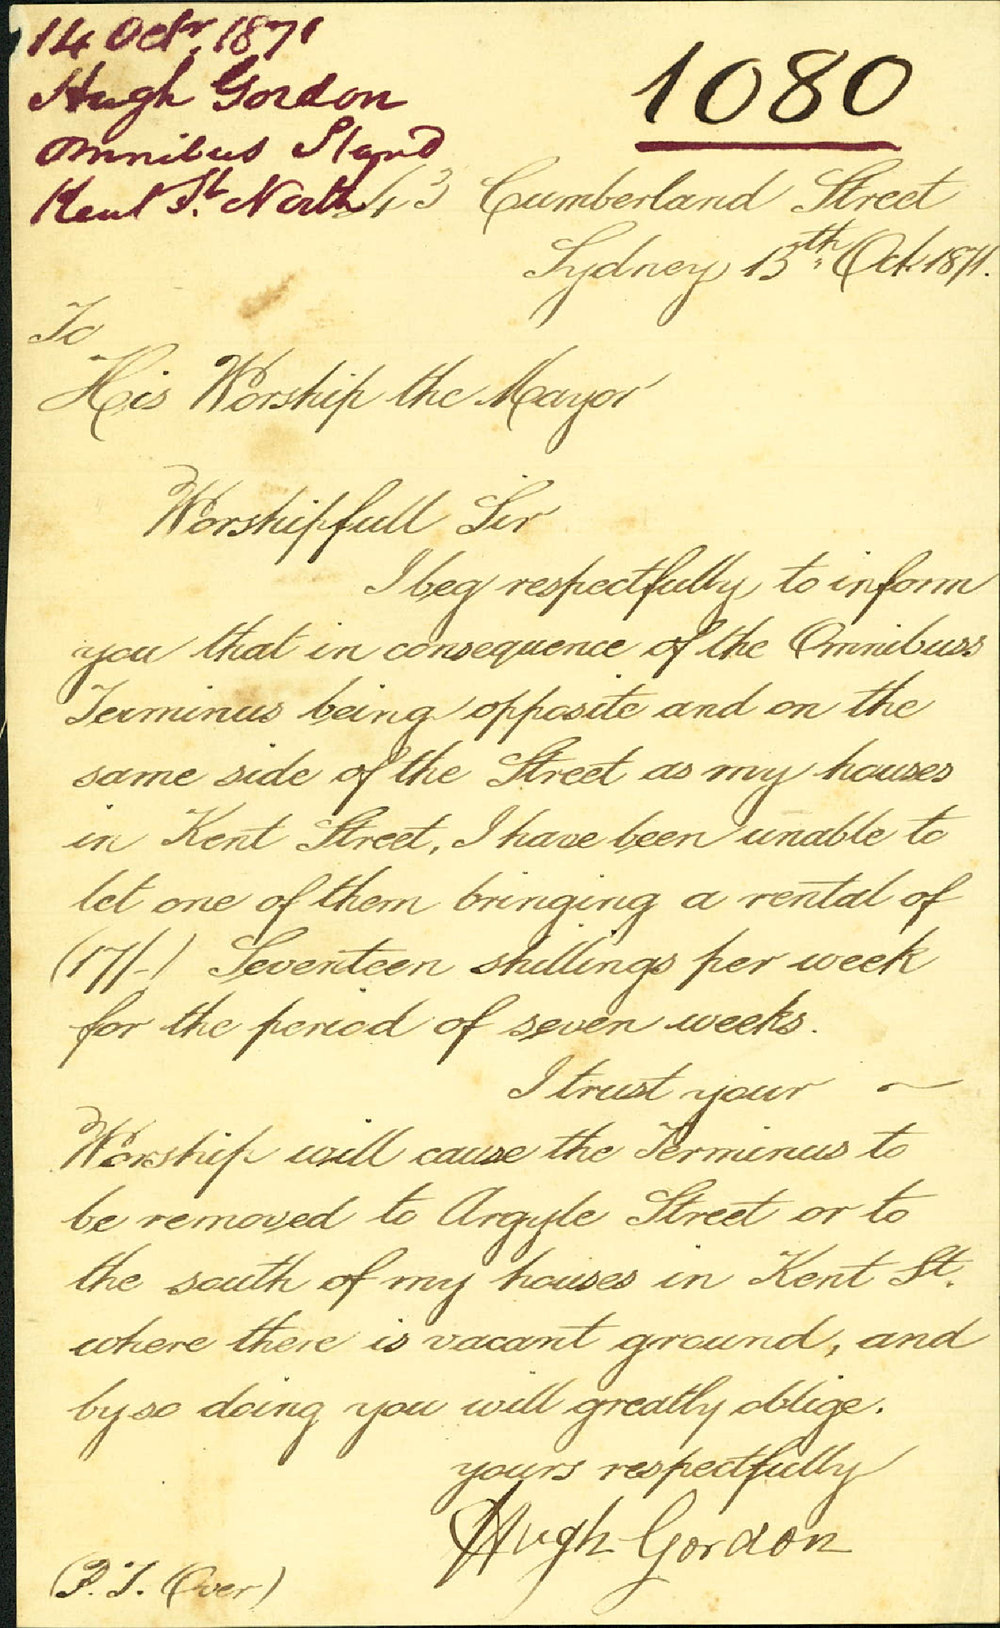 14 Octr 1871
Hugh Gordon
Omnibus Stand
Kent St. North
1080
43 Cumberland Street
Sydney 13th Oct 1871.
To
His Worship the Mayor
Worshipfull Sir
I beg respectfully to inform
you that in consequence of the Omnibuss
Terminus being opposite and on the
same side of the Street as my houses
in Kent Street, I have been unable to
let one of them bringing a rental of
(17/-) Seventeen shillings per week
for the period of seven weeks.
I trust your
Worship will cause the Terminus to
be removed to Argyle Street or to
the south of my houses in Kent St.
where there is vacant ground, and
by so doing you will greatly oblige.
yours respectfully
Hugh Gordon
(P.T. Over)